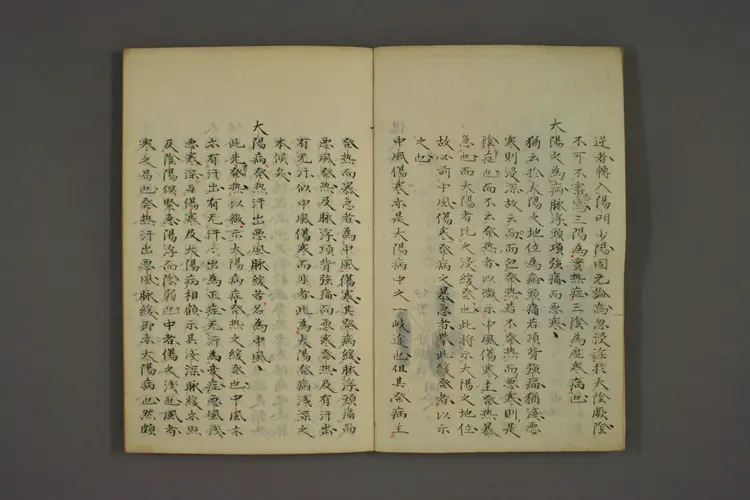 逆者轉入陽明少陽固無論焉忽沒淫於大陰厥陰
不可不審焉三陽為實熱症三陰為虛寒病也
大陽之為病脉浮頭項強痛而惡寒
猶云於大陽之地位為病頭痛若項背強痛猶淺惡
寒則浸深故云而而包發熱若不發熱而惡寒則是
陰症也而不云發熱者以微示中風傷寒主發熱暴
急也而大陽者比之浸緩發也此特示大陽之地位
故必前中風傷寒發病之暴急者舉此緩發者以示
之也
中風傷寒亦是大陽病中之一岐途也但其發病主
發熱而暴急者為中風傷寒其發病緩脉浮頭痛而
惡風發熱及脉浮項背強痛而惡寒發熱及有汗出
有無汗似中風傷寒而非者此為大陽發病淺深之
本候矣
大陽病發熱汗出惡風脉緩者名為中風
此先發熱以微示大陽病症發熱之緩發也中風亦
亦有汗出有無汗汗出為正症無汗為変症惡風淺
惡寒深与傷寒及大陽病相顧示其淺深脉緩亦照
及陰陽俱緊意陽浮而陰弱也中者傷之淺也風者
寒之易也發熱汗出惡風脉緩即亦大陽病也然頗